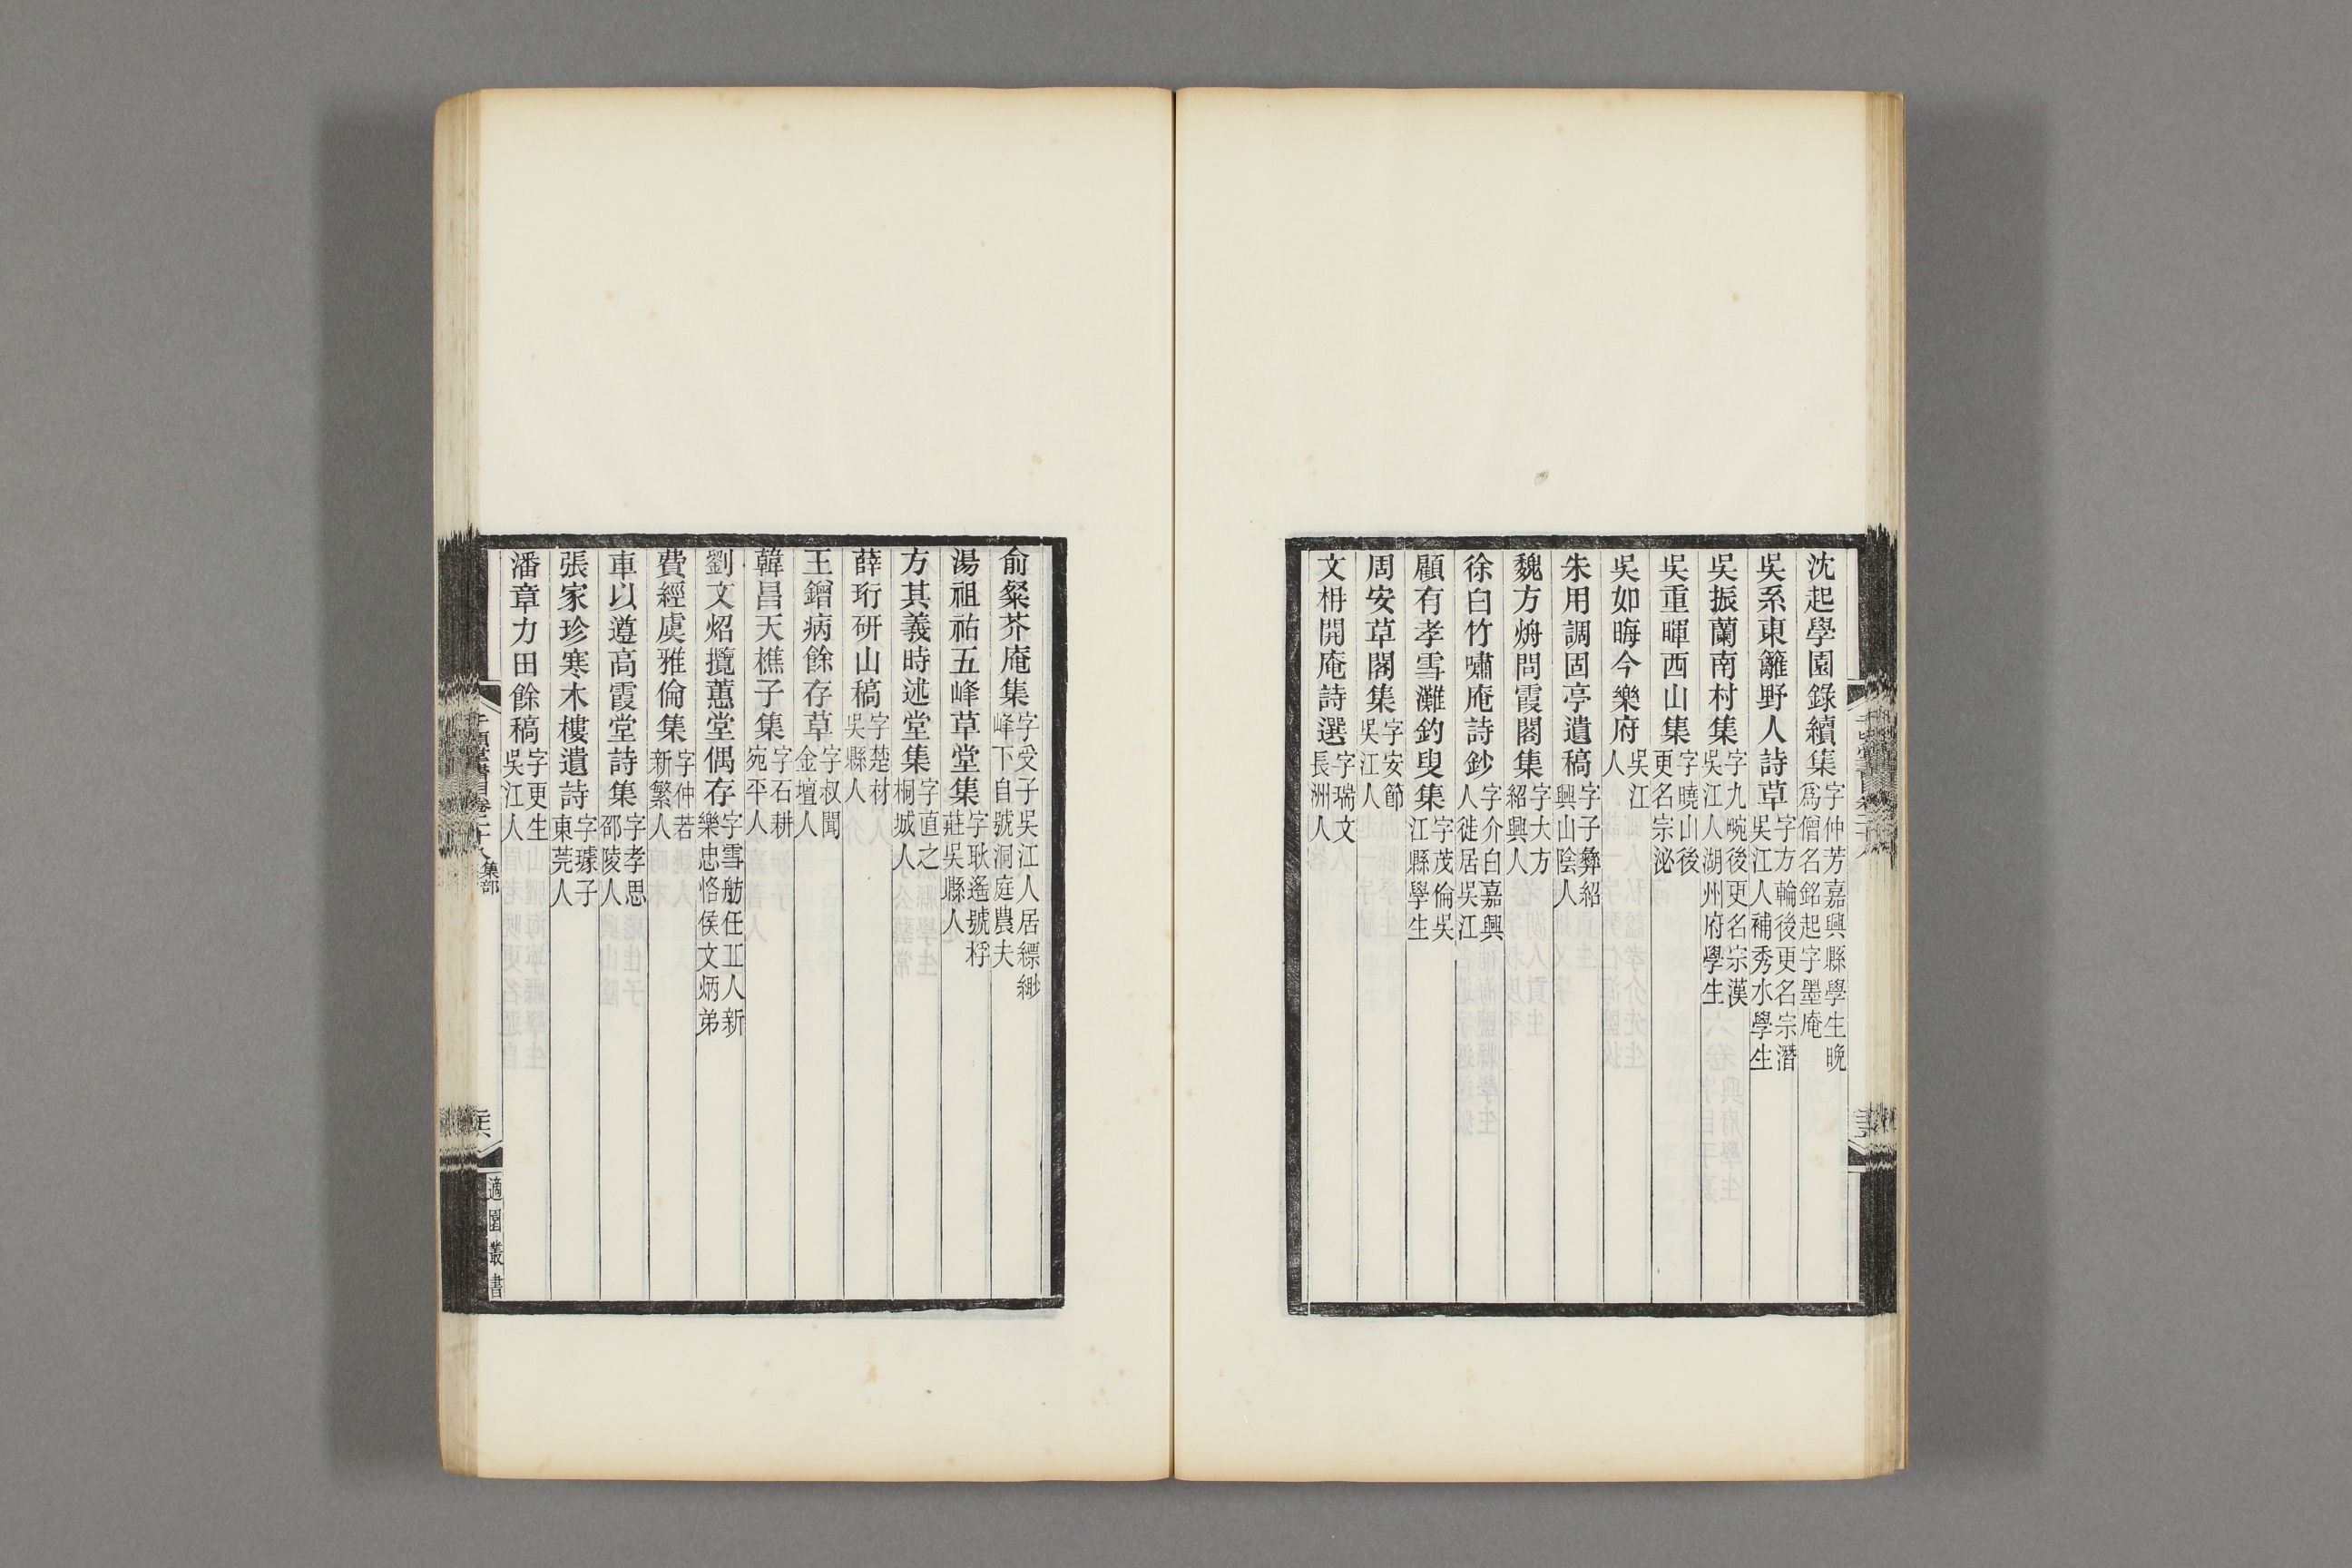 沈起學園錄續集字仲芳嘉興縣學生晚爲僧名銘起字墨庵
吳系東籬野人詩草字方輪後更名宗潛吳江人補秀水學生
吳振蘭南村集字九畹後更名宗漢吳江人湖州府學生
吳重暉西山集字曉山後更名宗泌
吳如晦今樂府吳江人
朱用調固亭遺稿字子彝紹興山陰人
魏方焴問霞閣集字大方紹興人
徐白竹嘯庵詩鈔字介白嘉興人徙居吳江
顧有孝雪灘釣叟集字茂倫吳江縣學生
周安草閣集字安節吳江人
文柟開庵詩選字瑞文長洲人
俞粲芥庵集字受子吳江人居縹緲峰下自號洞庭農夫
湯祖祐五峰草堂集字耿遙號桴莊吳縣人
方其義時述堂集字直之桐城人
薛珩研山稿字楚材吳縣人
王鏳病餘存草字叔聞金壇人
韓昌天樵子集字石耕宛平人
劉文炤攬蕙堂偶存字雪舫任丘人新樂忠恪侯文炳弟
費經虞雅倫集字仲若新繁人
車以遵高霞堂詩集字孝思邵陵人
張家珍寒木樓遺詩字璩子東莞人
潘章力田餘稿字更生吳江人
千頃堂書目卷二十八 集部
適園叢書